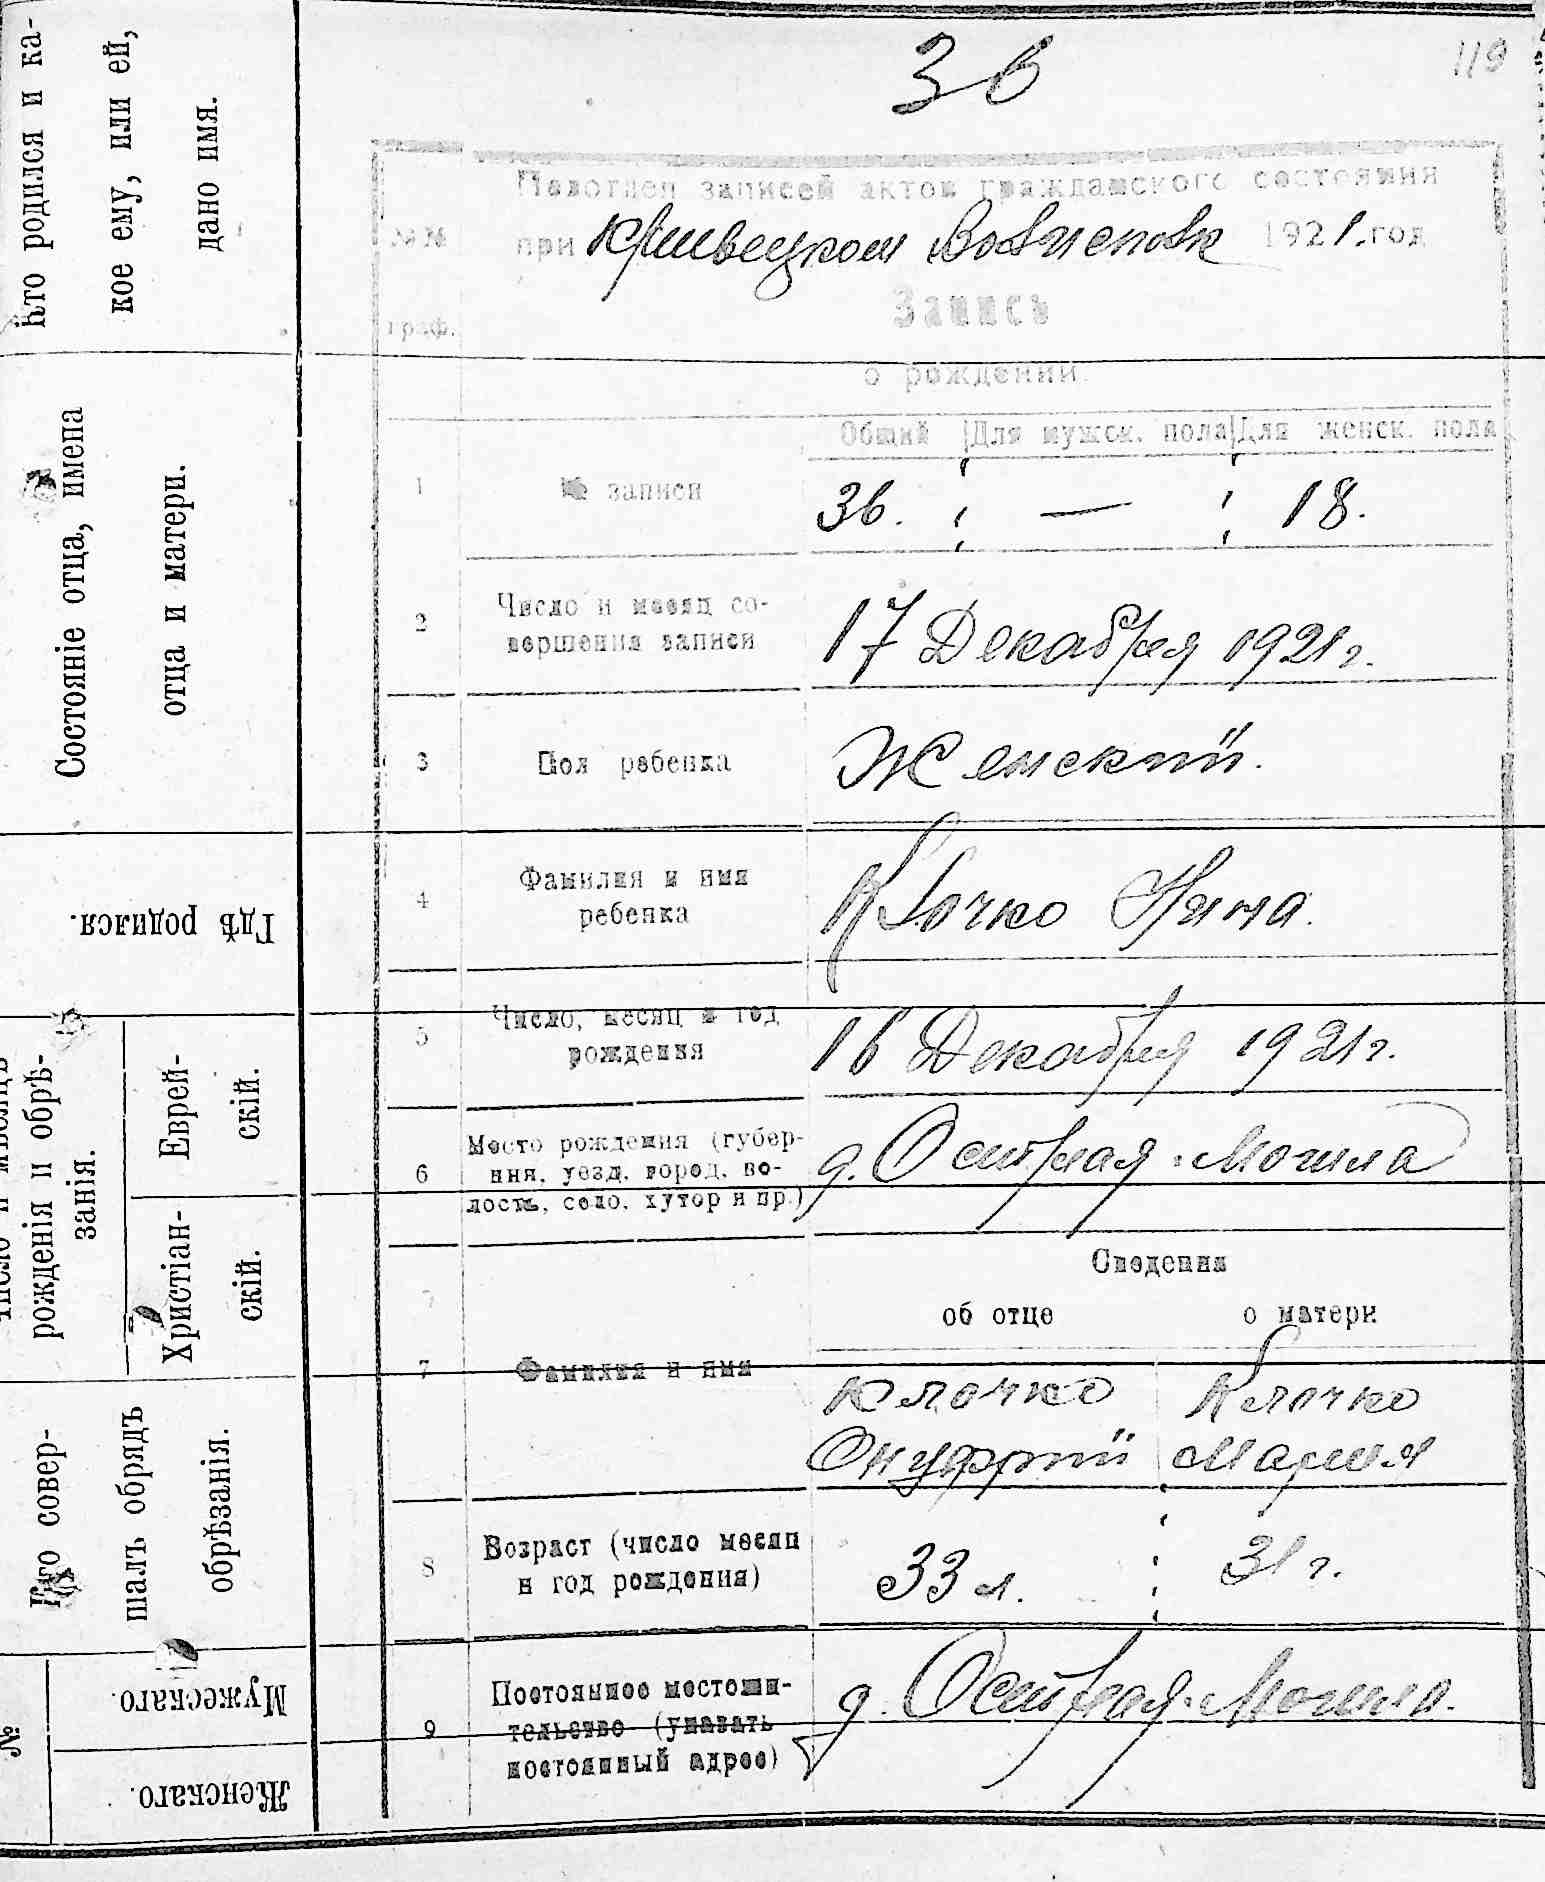 Кто родился и ка-
кое ему, или ей,
дано имя.
Состоянiе отца, имена
отца и матери.
Гдѣ родился.
рожденiя и обрѣ-
занiя.
Еврей-
скiй.
Христiан-
скiй.
Кто совер-
шалъ обрядъ
обрѣзанiя.
№
Мужескаго.
Женскаго.
36
119
записей актов гражданского состояния
№№
при Кривецком Волисполк 1921.год
Запись
граф.
о рождении.
Общий Для мужск. пола Для женск. пола
1 № записи 36. — 18.
2 Число и месяц со-
вершения записи
17 Декабря 1921 г.
3 Пол ребенка Женский.
4 Фамилия и имя
ребенка
Клочко Нина.
5 Число, месяц и год
рождения
16 Декабря 1921 г.
6 Место рождения (губер-
ния, уезд, город, во-
лость, село, хутор и пр.)
д. Острая-Могила
Сведения
об отце о матери
7 Фамилия и имя
Клочко Клочко
Онуфрий Мария
8 Возраст (число месяц
и год рождения)
33 л. 31 г.
9 Постоянное местожи-
тельство (указать
постоянный адрес)
д. Острая-Могила.